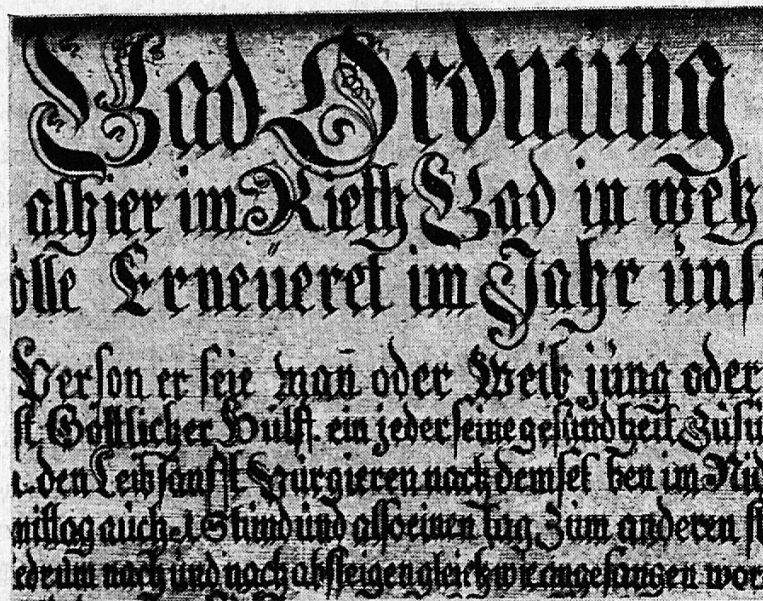 Bad Ordnung
alhier im Rieth Bad in welch
Erneüeret im Jahr ünse
Person er seie man̄ oder Weib jüng oder
st Göttlicher Hülff. ein jeder seine gesündheit Zü
den Leib sanfft Pürgieren nach demsel ben im
mittag aüch 1 Stünd ünd also einen tag Züm anderen
nach ünd nach absteigen gleich wie angefangen wor